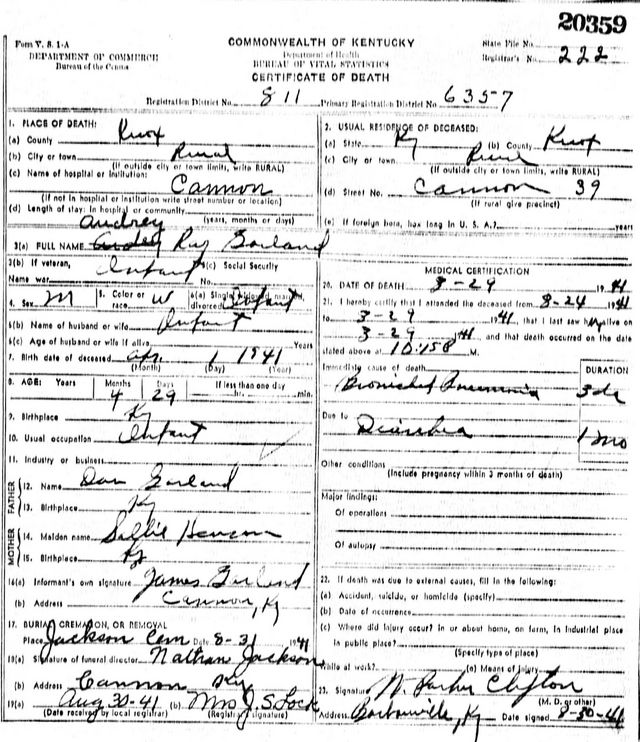 20359
Form V. S. 1-A
COMMONWEALTH OF KENTUCKY
State File No.
DEPARTMENT OF COMMERCE
Department of Health
Registrar's No. 222
Bureau of the Census
BUREAU OF VITAL STATISTICS
CERTIFICATE OF DEATH
Registration District No. 811 Primary Registration District No. 6357
1. PLACE OF DEATH:
(a) County Knox
(b) City or town Rural
(If outside city or town limits, write RURAL)
(c) Name of hospital or institution:
Cannon
(If not in hospital or institution write street number or location)
(d) Length of stay: In hospital or community
(years, months or days)
2. USUAL RESIDENCE OF DECEASED:
(a) State Ky (b) County Knox
(c) City or town Rural
(If outside city or town limits, write RURAL)
(d) Street No. Cannon 39
(If rural give precinct)
(e) If foreign born, how long in U. S. A.? years
Audrey
3(a) FULL NAME Ray Garland
3(b) If veteran, Name war Infant 3(c) Social Security No.
4. Sex M 5. Color or race W 6(a) Single, widowed, married, divorced Infant
6(b) Name of husband or wife Infant
6(c) Age of husband or wife if alive Years
7. Birth date of deceased Apr 1 1941
(Month) (Day) (Year)
8. AGE: Years Months Days If less than one day
4 29 hr. min.
9. Birthplace Ky
10. Usual occupation Infant
11. Industry or business
FATHER
12. Name Dan Garland
13. Birthplace Ky
MOTHER
14. Maiden name Sallie Henson
15. Birthplace Ky
16(a) Informant's own signature James Garland
(b) Address Cannon, Ky
17. BURIAL, CREMATION, OR REMOVAL
Place Jackson Cem Date 8-31 1941
18(a) Signature of funeral director Nathan Jackson
(b) Address Cannon Ky
19(a) Aug 30-41 (b) Mrs J. S. Lock
(Date received by local registrar) (Registrar's signature)
MEDICAL CERTIFICATION
20. DATE OF DEATH 8-29 1941
21. I hereby certify that I attended the deceased from 8-24 1941
to 8-29 1941, that I last saw h alive on
8-29 1941 and that death occurred on the date
stated above at 10:15 M.
Immediate cause of death
DURATION
Bronichal Pneumonia 3 de
Due to
Diarrhea 1 mo
Other conditions
(Include pregnancy within 3 months of death)
Major findings:
Of operations
Of autopsy
22. If death was due to external causes, fill in the following:
(a) Accident, suicide, or homicide (specify)
(b) Date of occurrence
(c) Where did injury occur? In or about home, on farm, in industrial place
in public place?
(Specify type of place)
While at work? (e) Means of injury
23. Signature W. Parker Clifton
(M. D. or other)
Address Barbourville, Ky Date signed 8-30-41